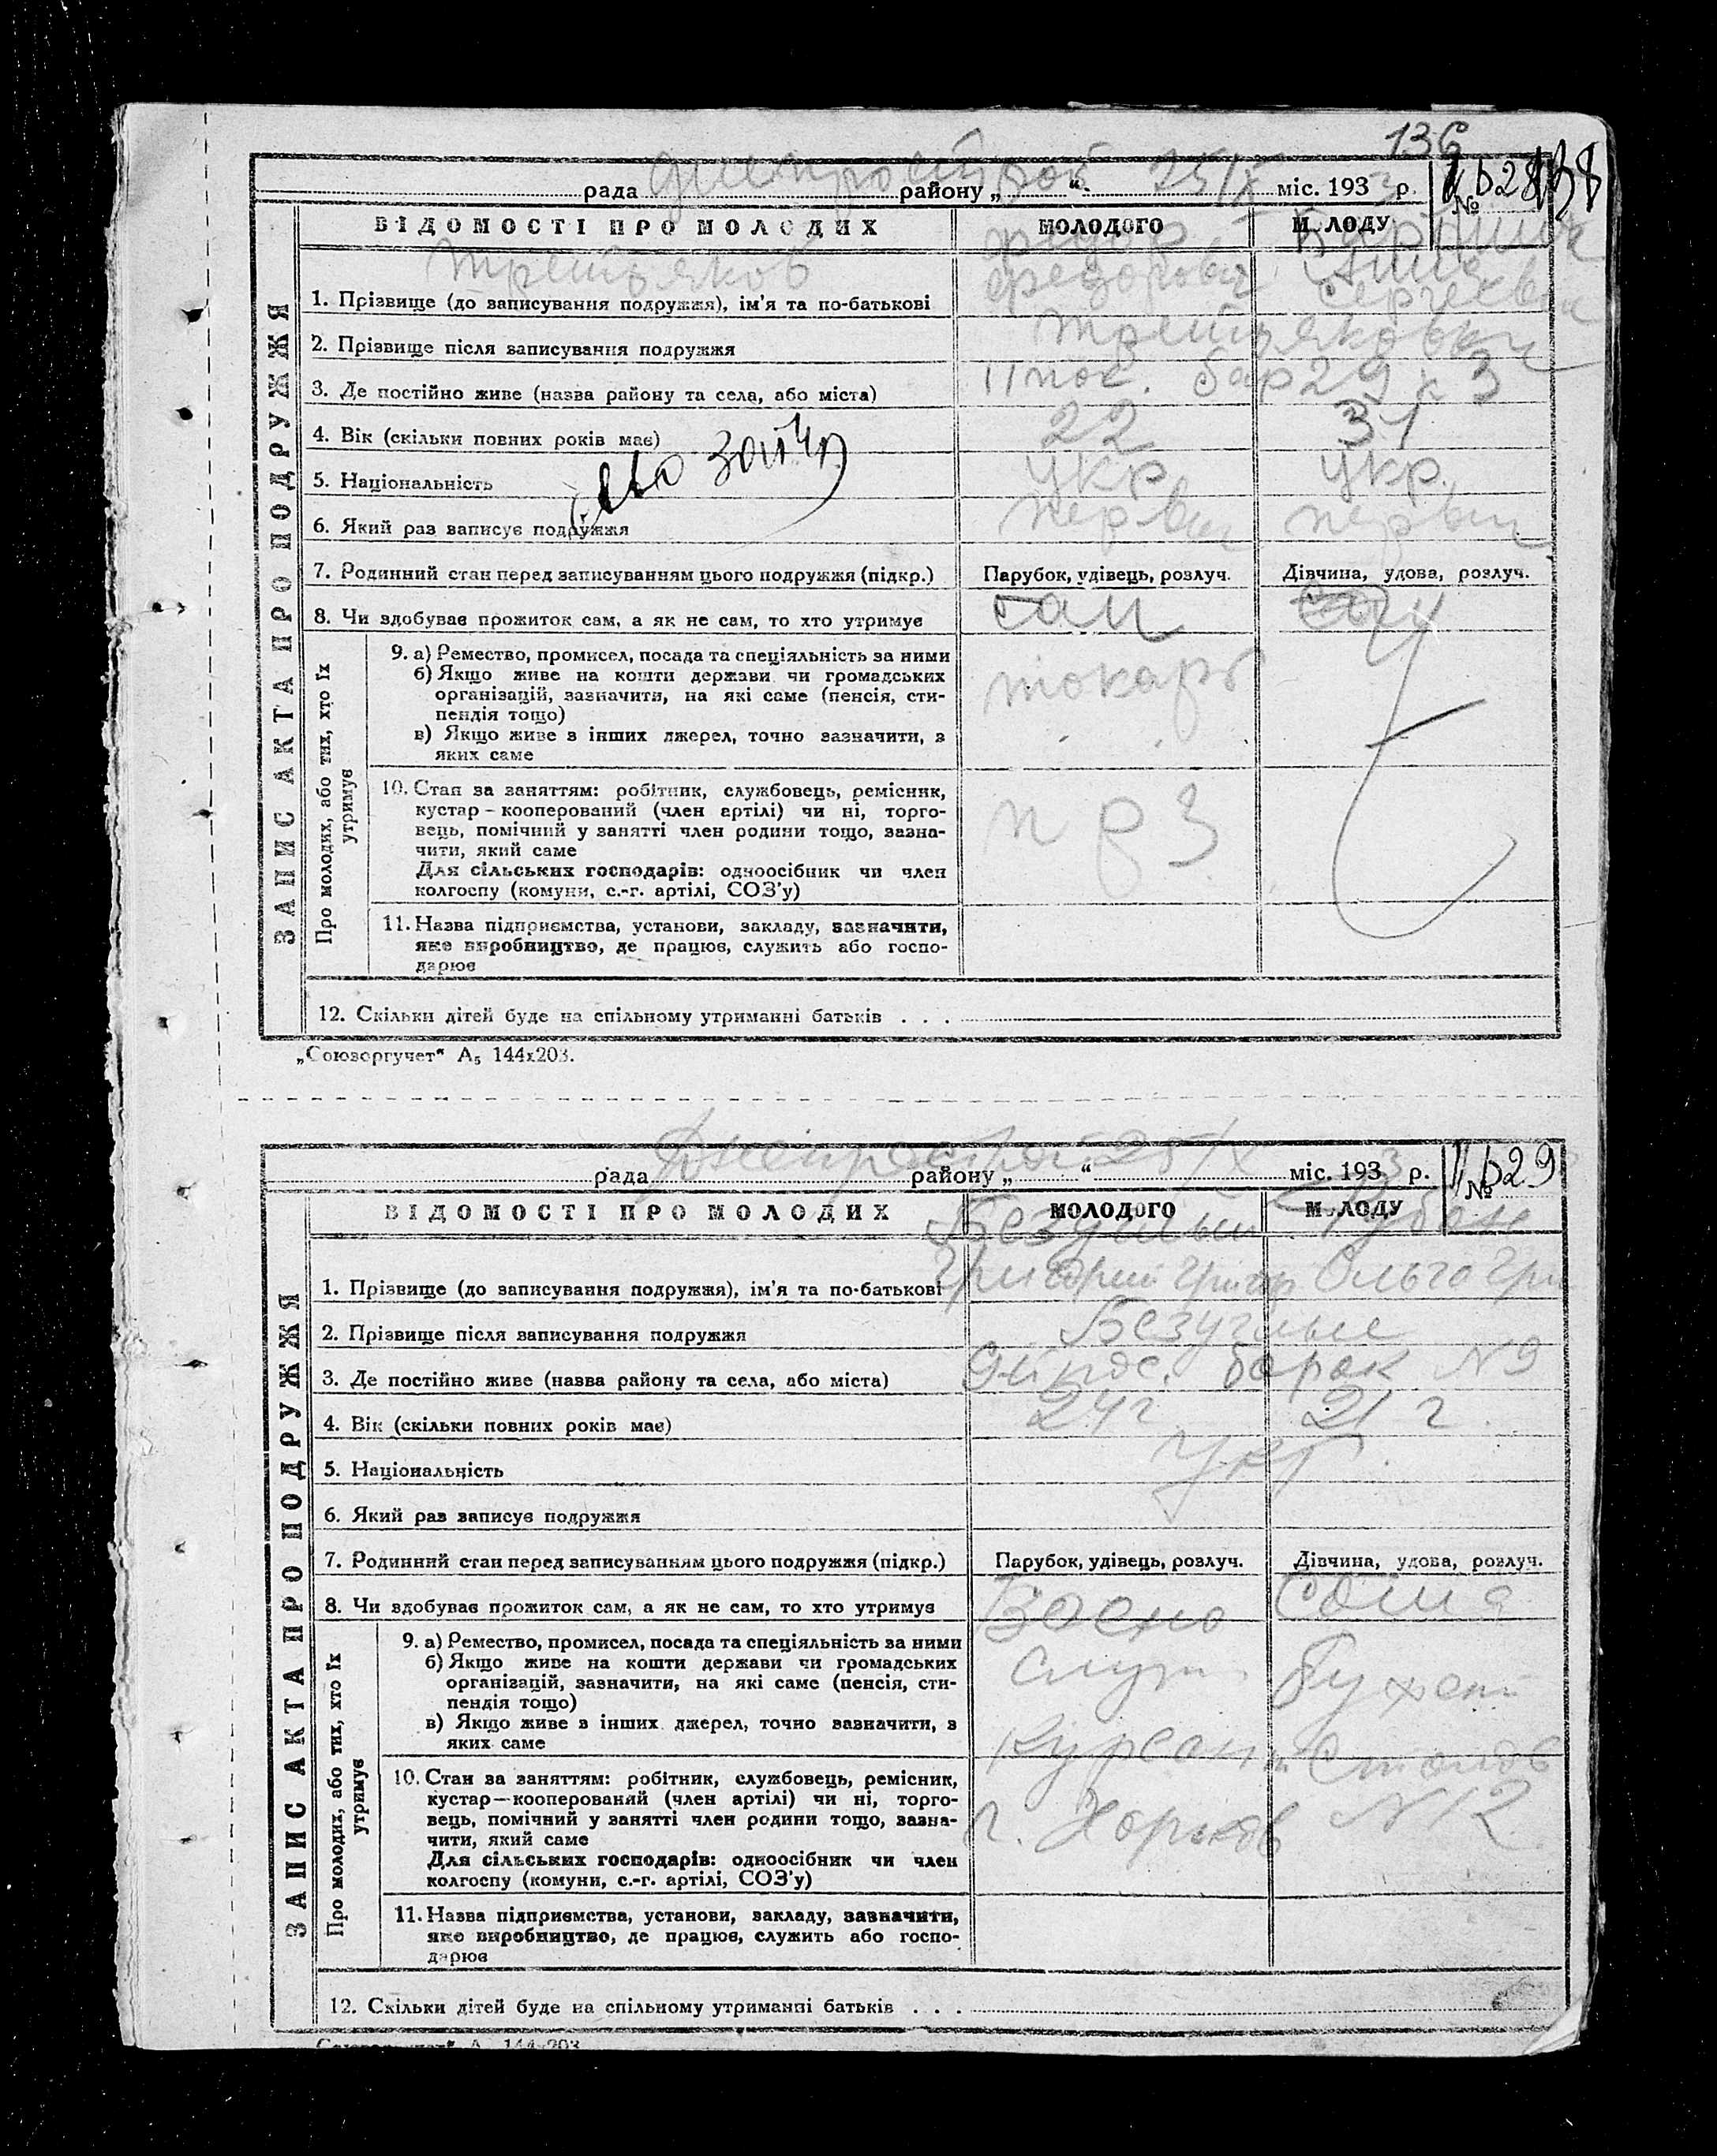 136
рада Днепрострой району „ “ 25/X міс. 1933 р. № 1628 138
ВІДОМОСТІ ПРО МОЛОДИХ МОЛОДОГО МОЛОДУ
ЗАПИС АКТА ПРО ПОДРУЖЖЯ
Третьяков Федор
Федорович Анна Сергеевна
1. Прізвище (до записування подружжя), ім’я та по-батькові
2. Прізвище після записування подружжя Третьяковы
3. Де постійно живе (назва району та села, або міста) 11 пос. бар 29 к 3
4. Вік (скільки повних років має) 22 31
5. Національність укр укр.
6. Який раз записує подружжя первый первый
7. Родинний стан перед записуванням цього подружжя (підкр.) Парубок, удівець, розлуч. Дівчина, удова, розлуч.
8. Чи здобуває прожиток сам, а як не сам, то хто утримує сам
Про молодих, або тих, хто їх утримує
9. а) Ремество, промисел, посада та спеціяльність за ними токарь
б) Якщо живе на кошти держави чи громадських
організацій, зазначити, на які саме (пенсія, сти-
пендія тощо)
в) Якщо живе з інших джерел, точно зазначити, з
яких саме
10. Стан за заняттям: робітник, службовець, ремісник,
кустар – кооперований (член артілі) чи ні, торго-
вець, помічний у занятті член родини тощо, зазна-
чити, який саме
Для сільських господарів: одноосібник чи член
колгоспу (комуни, с.-г. артілі, СОЗ’у)
11. Назва підприємства, установи, закладу, зазначити,
яке виробництво, де працює, служить або госпо-
дарює
12. Скільки дітей буде на спільному утриманні батьків . . .
„Союзоргучет“ А₅ 144х203.
рада Днепрострой району „ “ 25/X міс. 1933 р. № 1629
ВІДОМОСТІ ПРО МОЛОДИХ МОЛОДОГО МОЛОДУ
ЗАПИС АКТА ПРО ПОДРУЖЖЯ
Безуглый
1. Прізвище (до записування подружжя), ім’я та по-батькові Григорий Григор Ольга Гри
2. Прізвище після записування подружжя Безуглые
3. Де постійно живе (назва району та села, або міста) 9й пос. барак N 9
4. Вік (скільки повних років має) 24 г 21 г.
5. Національність Укр.
6. Який раз записує подружжя
7. Родинний стан перед записуванням цього подружжя (підкр.) Парубок, удівець, розлуч. Дівчина, удова, розлуч.
8. Чи здобуває прожиток сам, а як не сам, то хто утримує Воено Сама
Про молодих, або тих, хто їх утримує
9. а) Ремество, промисел, посада та спеціяльність за ними служ.
б) Якщо живе на кошти держави чи громадських
організацій, зазначити, на які саме (пенсія, сти-
пендія тощо)
в) Якщо живе з інших джерел, точно зазначити, з
яких саме Курсант Столов
10. Стан за заняттям: робітник, службовець, ремісник,
кустар—кооперований (член артілі) чи ні, торго-
вець, помічний у занятті член родини тощо, зазна-
чити, який саме г. Харьков N 12
Для сільських господарів: одноосібник чи член
колгоспу (комуни, с.-г. артілі, СОЗ’у)
11. Назва підприємства, установи, закладу, зазначити,
яке виробництво, де працює, служить або госпо-
дарює
12. Скільки дітей буде на спільному утриманні батьків . . .
„Союзоргучет“ А₅ 144х203